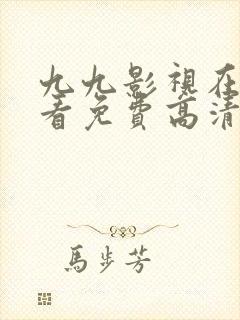 九九影視在
看免費高清
馬步芳